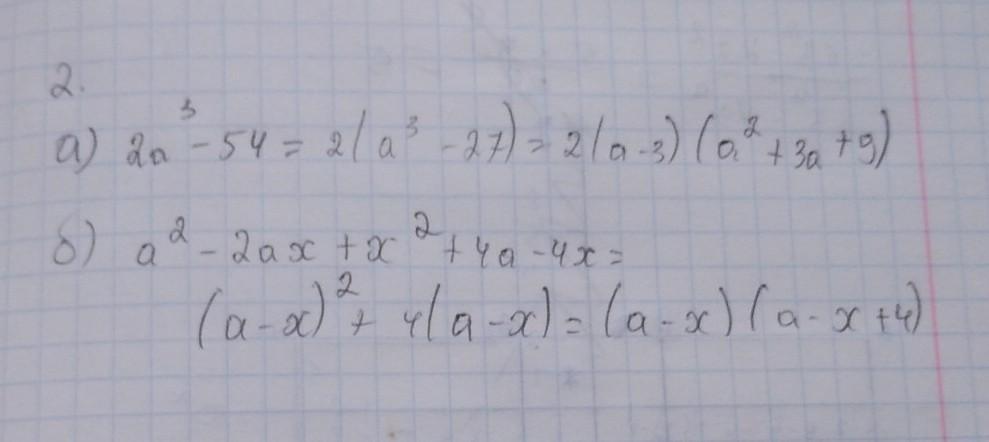 2.
а) 2a³ - 54 = 2(a³ - 27) = 2(a - 3)(a² + 3a + 9)
б) a² - 2ax + x² + 4a - 4x =
(a - x)² + 4(a - x) = (a - x)(a - x + 4)